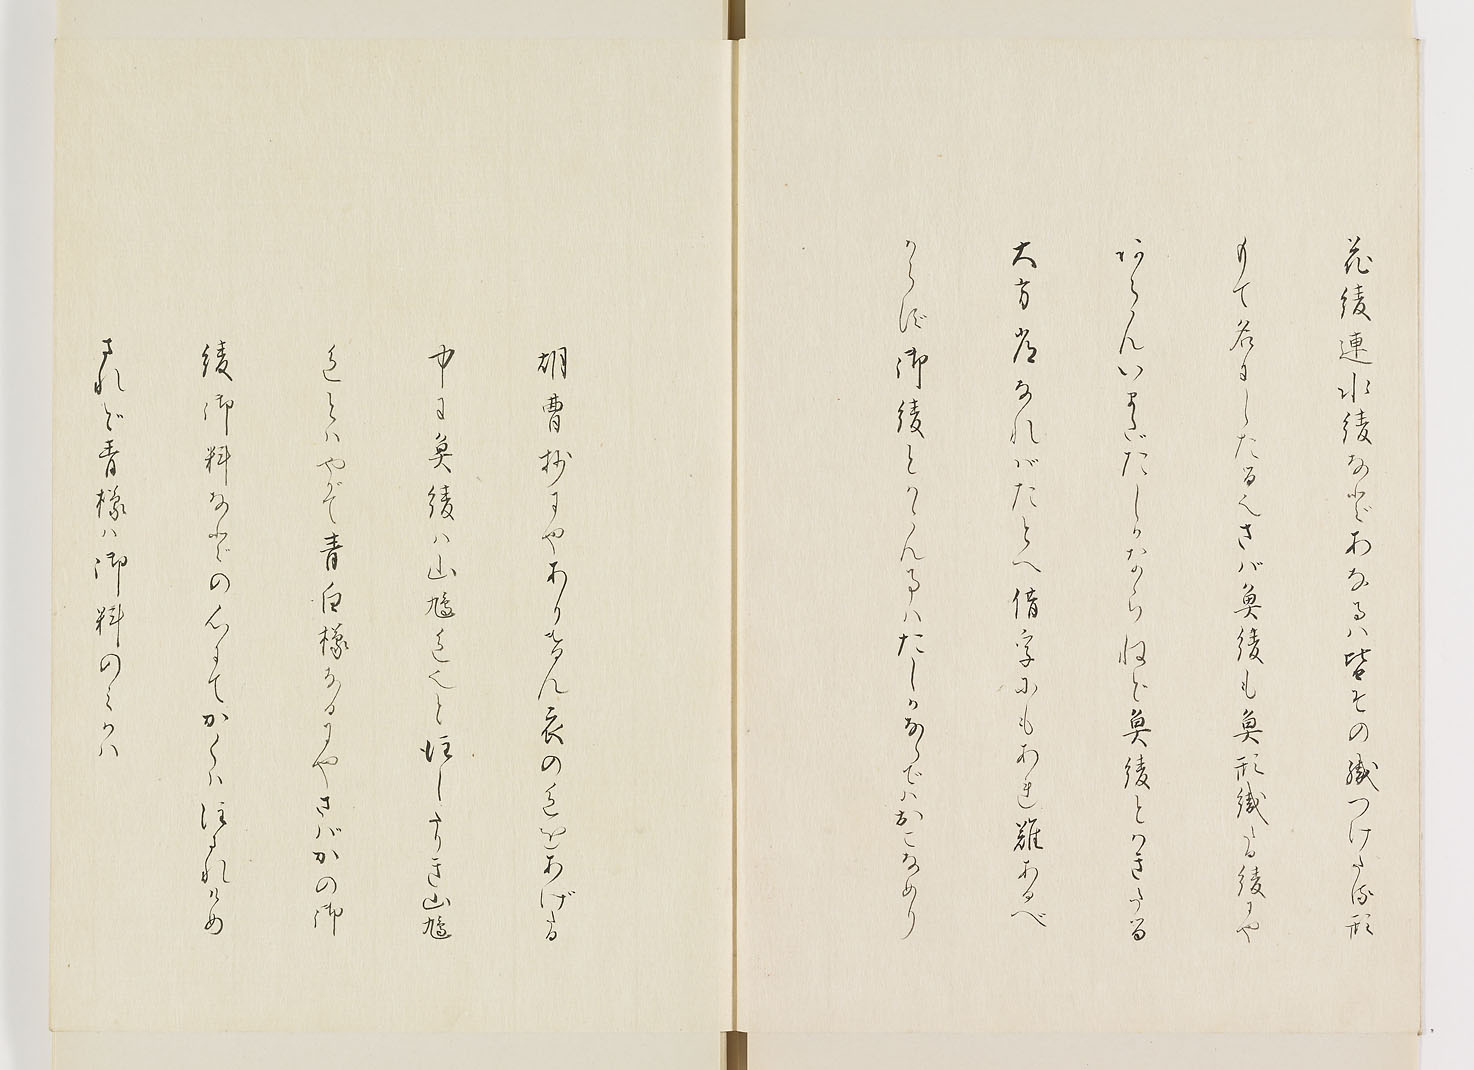 花綾連水綾などあなるハ皆その織つけたる形
もて名にしたる也さバ魚綾も魚形織たる綾にや
あらんいまだたしかならねど魚綾とかきたる
大方定なれバたとへ借字にもあれ難あるべ
からず御綾とかかん事ハたしかならでハおこなめり
胡曹抄にやありけん衣の色をあげたる
中に魚綾ハ山鳩色也と注したりき山鳩
色とハやがて青白橡なるにやさバかの御
綾御料などの心にてかくハ注されけめ
されど青橡ハ御料のみかハ